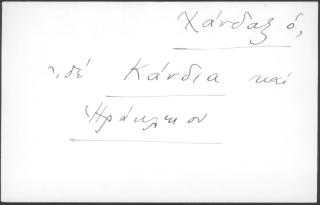 Χάνδαξ ὁ,
ἰδέ Κάνδια καί
Ἡράκλειον